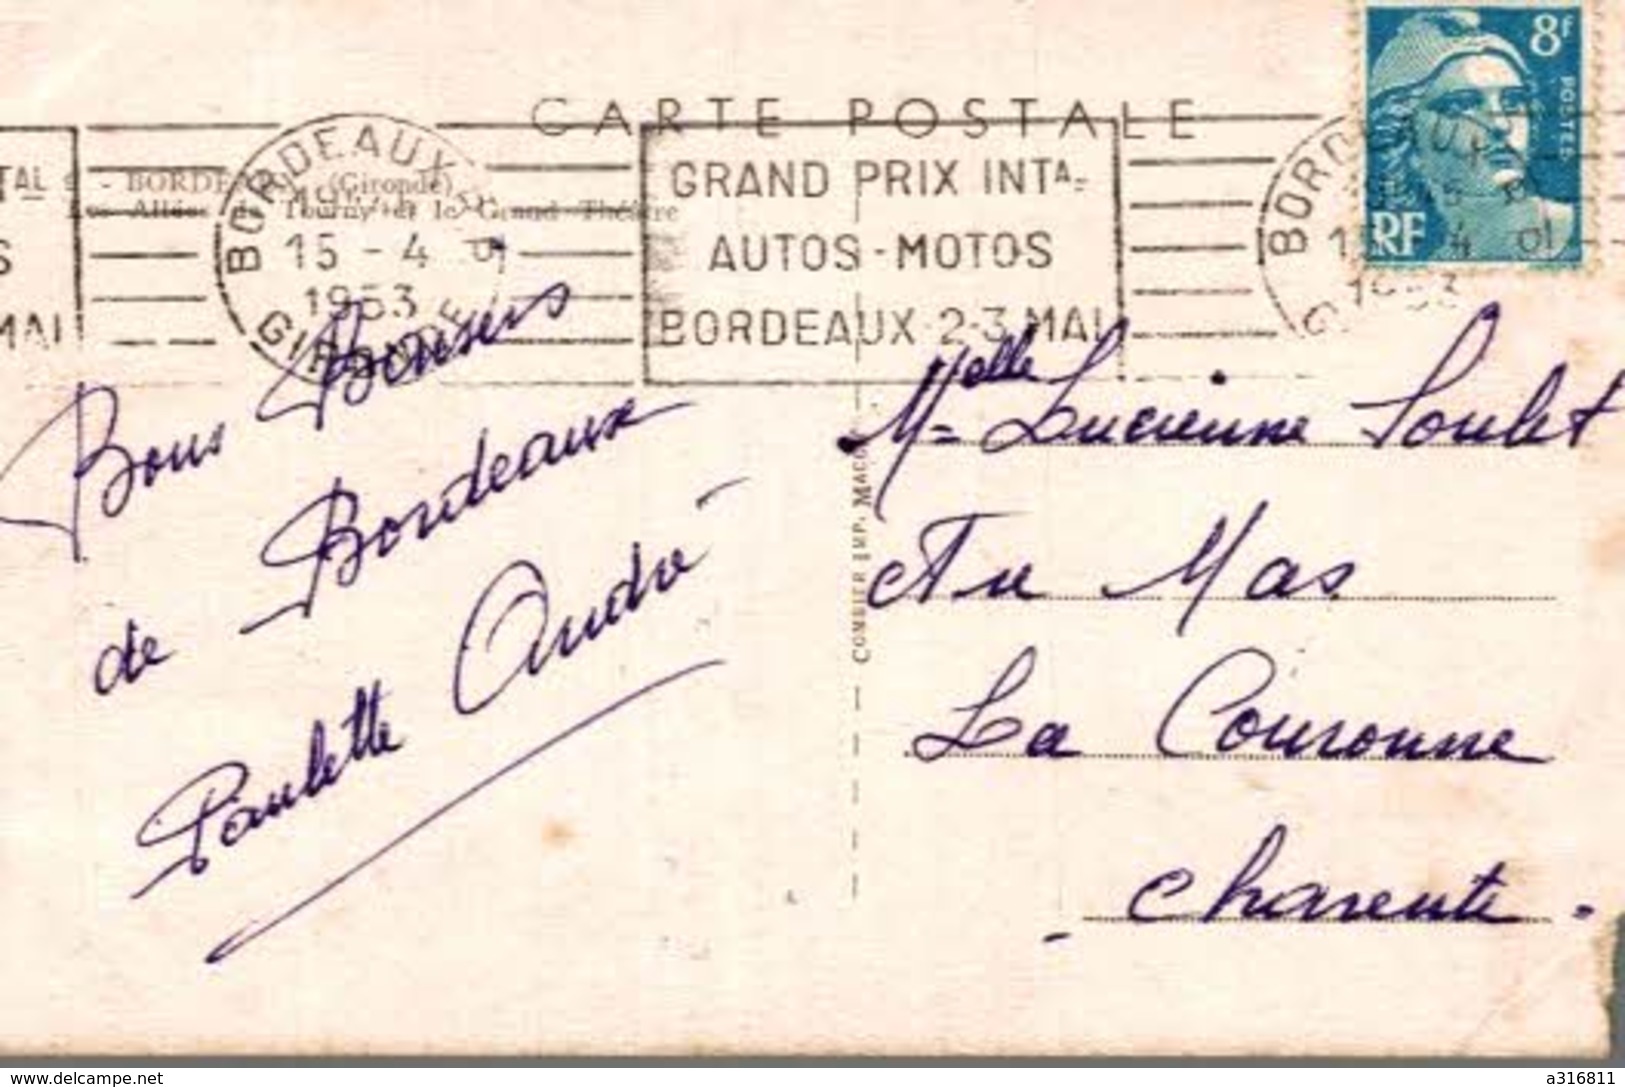 CARTE POSTALE
8f
POSTES
RF
TAL
S
MAI
BORDEAUX
15 - 4
1953
GIRONDE
GRAND PRIX INTAL
AUTOS - MOTOS
BORDEAUX 2-3 MAI
BORDEAUX
4
1953
- BORDEAUX (Gironde)
Les Allées de Tourny et le Grand Théâtre
Bons Baisers
de Bordeaux
Paulette André
COMBIER IMP. MACON
Melle Lucienne Soulet
Au Mas
La Couronne
- Charente -
delcampe.net
a316811